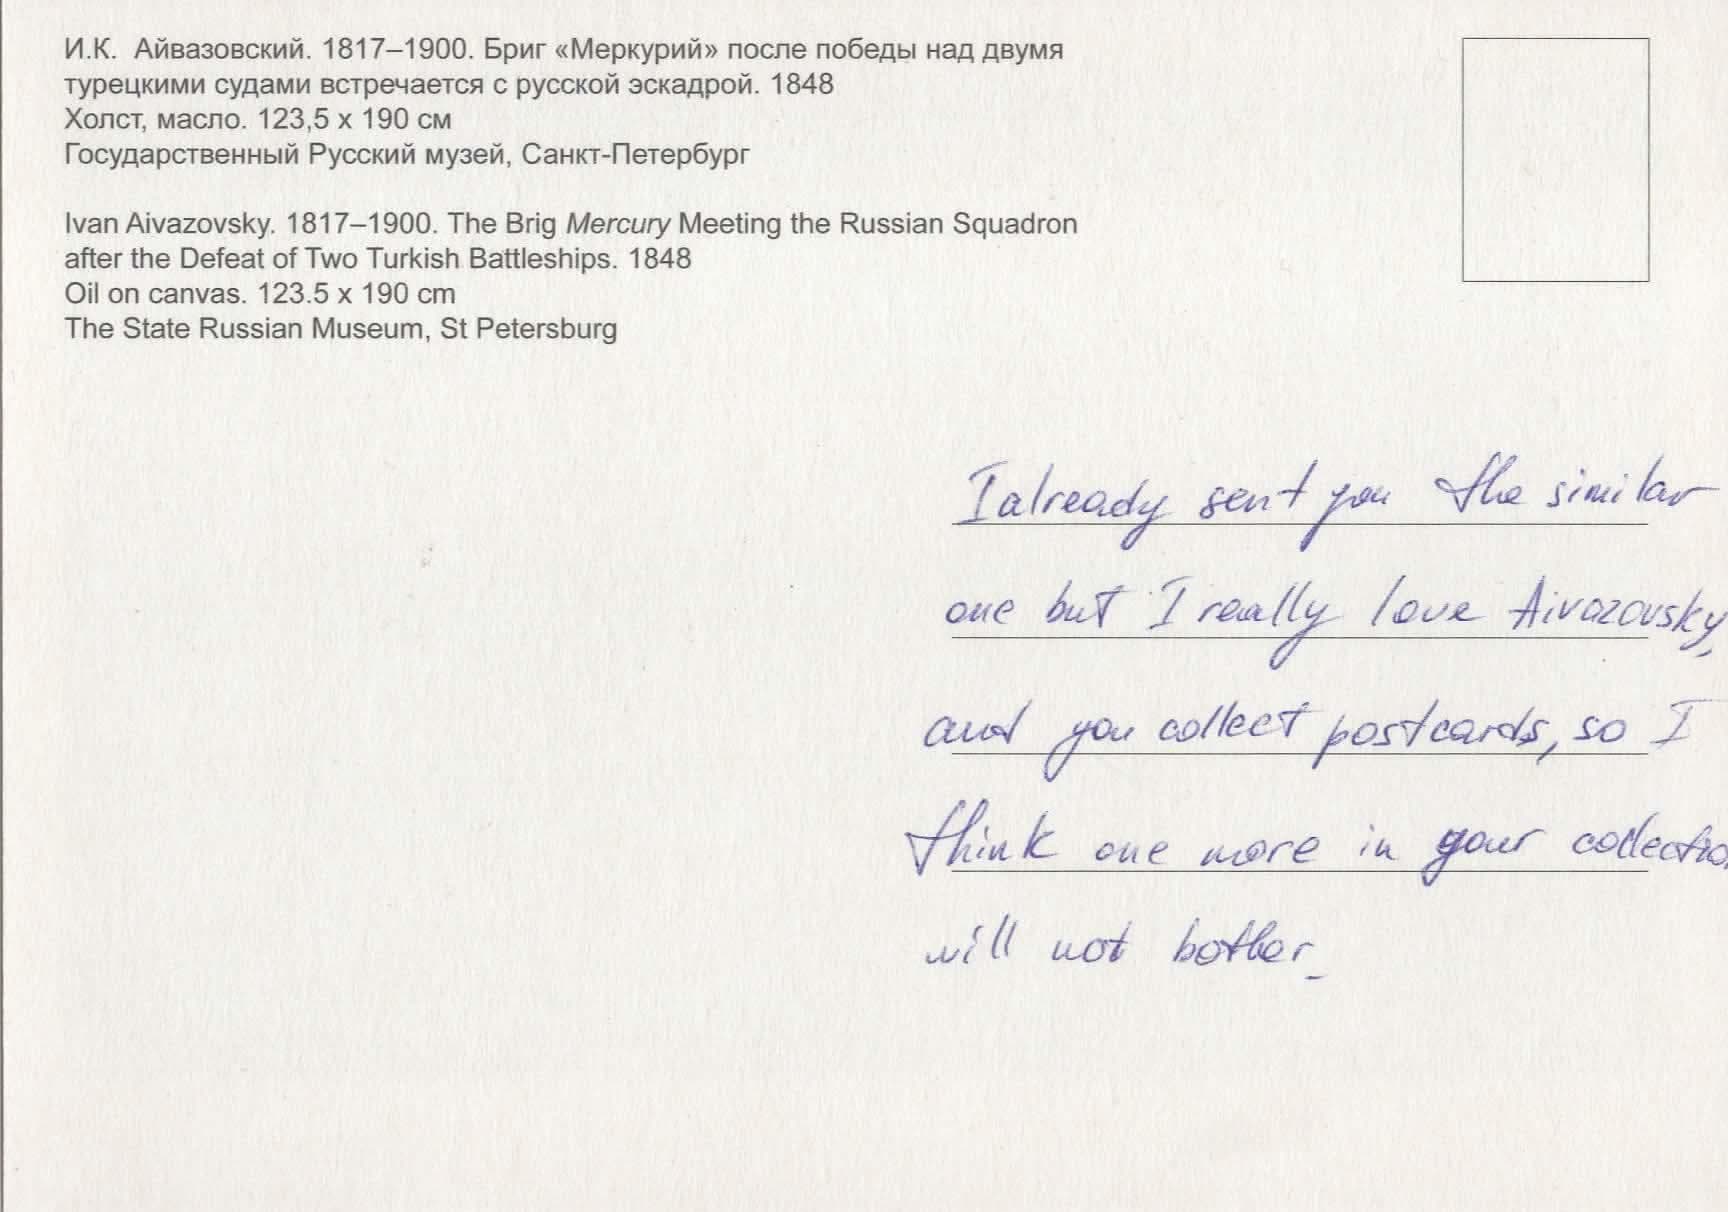 И.К. Айвазовский. 1817–1900. Бриг «Меркурий» после победы над двумя
турецкими судами встречается с русской эскадрой. 1848
Холст, масло. 123,5 x 190 см
Государственный Русский музей, Санкт-Петербург
Ivan Aivazovsky. 1817–1900. The Brig Mercury Meeting the Russian Squadron
after the Defeat of Two Turkish Battleships. 1848
Oil on canvas. 123.5 x 190 cm
The State Russian Museum, St Petersburg
I already sent you the similar
one but I really love Aivazovsky,
and you collect postcards, so I
think one more in your collection
will not bother.